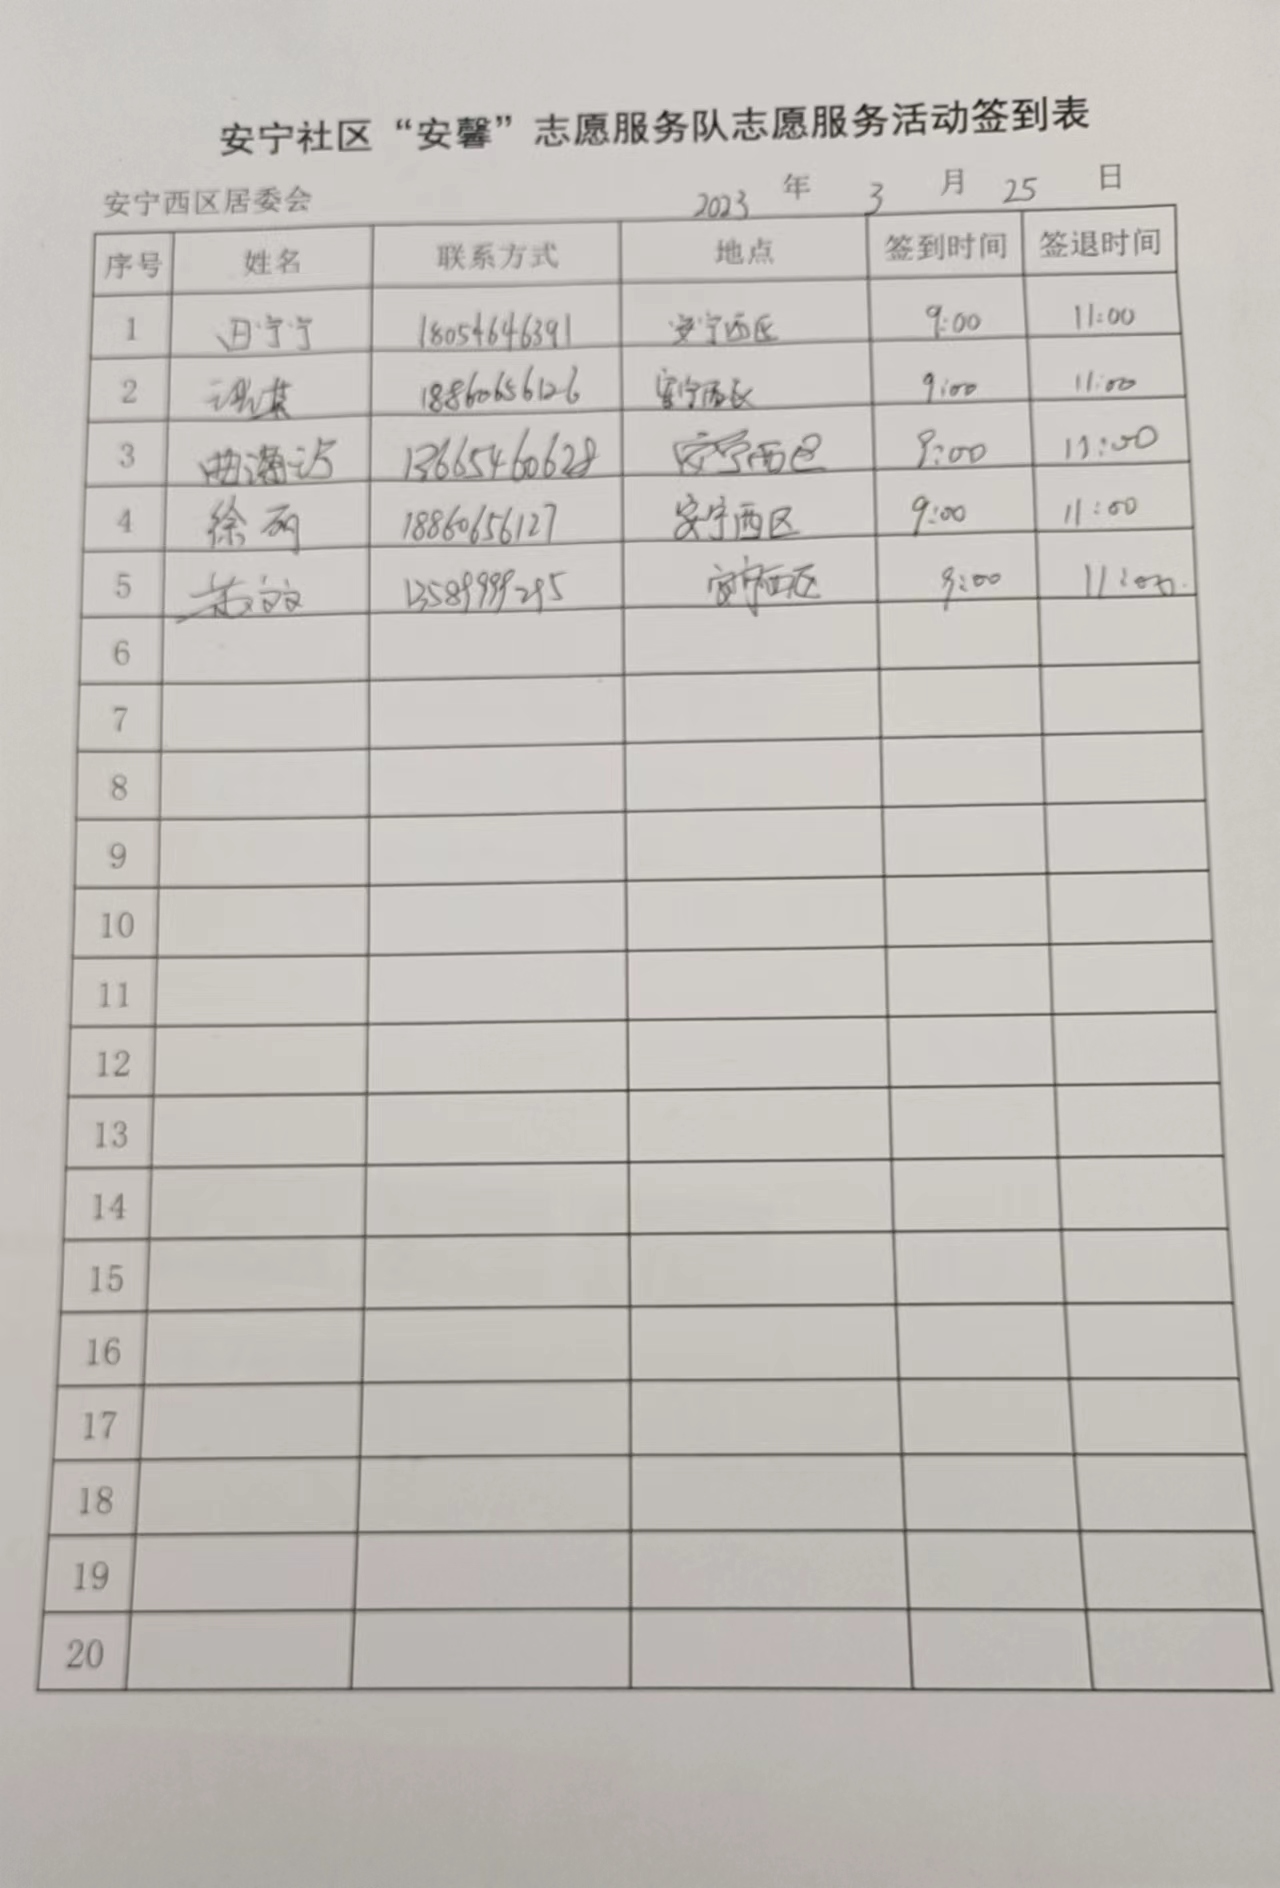 安宁社区“安馨”志愿服务队志愿服务活动签到表
安宁西区居委会 2023 年 3 月 25 日
序号 姓名 联系方式 地点 签到时间 签退时间
1 田宁宁 18054646391 安宁西区 9:00 11:00
2 18860656126 安宁西区 9:00 11:00
3 13665460628 安宁西区 9:00 11:00
4 徐丽 18860656127 安宁西区 9:00 11:00
5 安宁西区 9:00 11:00
6
7
8
9
10
11
12
13
14
15
16
17
18
19
20